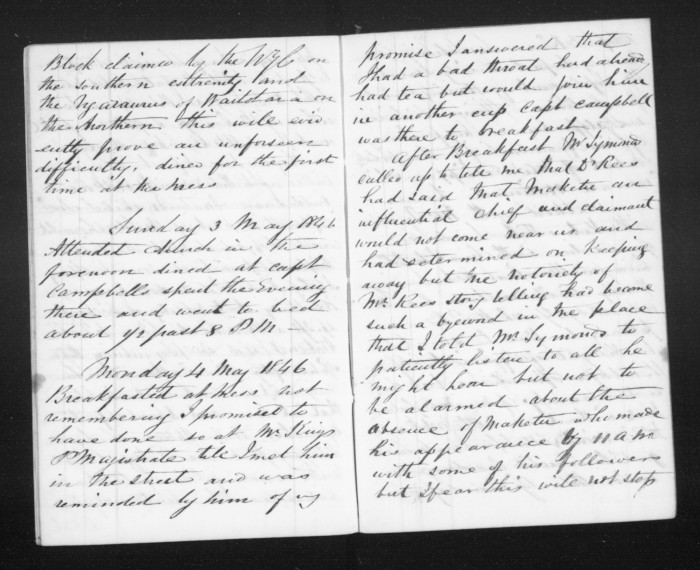 Block claimed by the NZC on
the southern extremity and
the Ngarauru of Waitotara on
the Northern this will evid
ently prove an unforseen
difficulty, dined for the first
time at the mess
Sunday 3 May 1846
Attended church in the
forenoon dined at Capt
Campbells spent the Evening
there and went to bed
about ½ past 8 PM —
Monday 4 May 1846
Breakfasted at mess not
remembering I promised to
have done so at Mr Kings
P Magistrate till I met him
in the street and was
reminded by him of my
promise I answered that
I had a bad throat had already
had tea but would join him
in another cup Capt Campbell
was there to breakfast
After Breakfast Mr Symonds
called up to tell me that Dr Rees
had said that Maketu an
influential chief and claimant
would not come near us and
had determined on keeping
away but the notoriety of
Mr Rees story telling had become
such a byeword in the place
that I told Mr Symonds to
patiently listen to all he
might hear but not to
be alarmed about the
absence of Maketu who made
his appearance by 11 am
with some of his followers
but I fear this will not stop